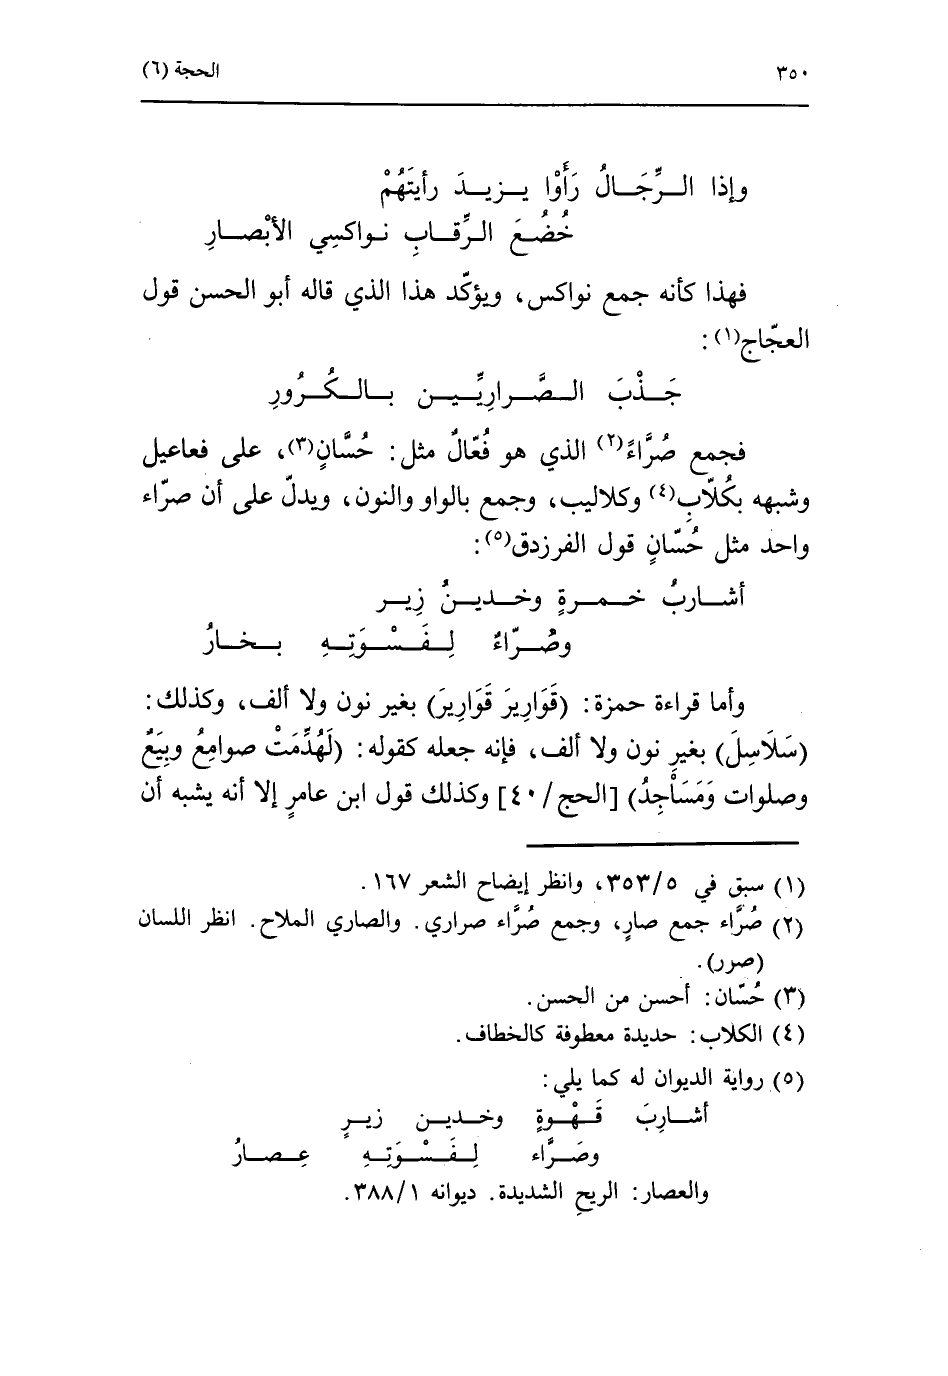 ٣٥٠ الحجة (٦)
وإذا الـرِّجَـالُ رَأَوْا يـزيـدَ رأيتَهُمْ
خُضُعَ الـرِّقـابِ نـواكسِي الأبْصـارِ
فهذا كأنه جمع نواكس، ويؤكّد هذا الذي قاله أبو الحسن قول
العجّاج(١):
جَـذْبَ الـصَّـراريِّـيـن بـالـكُـرُورِ
فجمع صُرَّاءً(٢) الذي هو فُعّالٌ مثل: حُسَّانٍ(٣)، على فعاعيل
وشبهه بكُلّابٍ(٤) وكلاليب، وجمع بالواو والنون، ويدلّ على أن صرّاء
واحد مثل حُسّانٍ قول الفرزدق(٥):
أشـاربُ خـمـرةٍ وخـديـنُ زِيـر
وصُـرّاءٌ لِـفَـسْـوَتِـهِ بـخـارُ
وأما قراءة حمزة: (قَوَارِيرَ قَوَارِيرَ) بغير نون ولا ألف، وكذلك:
(سَلَاسِلَ) بغير نون ولا ألف، فإنه جعله كقوله: (لَهُدِّمَتْ صوامِعُ وبِيَعٌ
وصلوات وَمَسَاْجِدُ) [الحج/٤٠] وكذلك قول ابن عامرٍ إلا أنه يشبه أن
(١) سبق في ٣٥٣/٥، وانظر إيضاح الشعر ١٦٧.
(٢) صُرَّاء جمع صارٍ، وجمع صُرَّاء صراري. والصاري الملاح. انظر اللسان
(صرر).
(٣) حُسّان: أحسن من الحسن.
(٤) الكلاب: حديدة معطوفة كالخطاف.
(٥) رواية الديوان له كما يلي:
أشـارِبَ قَـهْـوةٍ وخـديـن زيـرٍ
وصَـرَّاء لِـفَـسْـوَتِـهِ عِـصـارُ
والعصار: الريح الشديدة. ديوانه ٣٨٨/١.